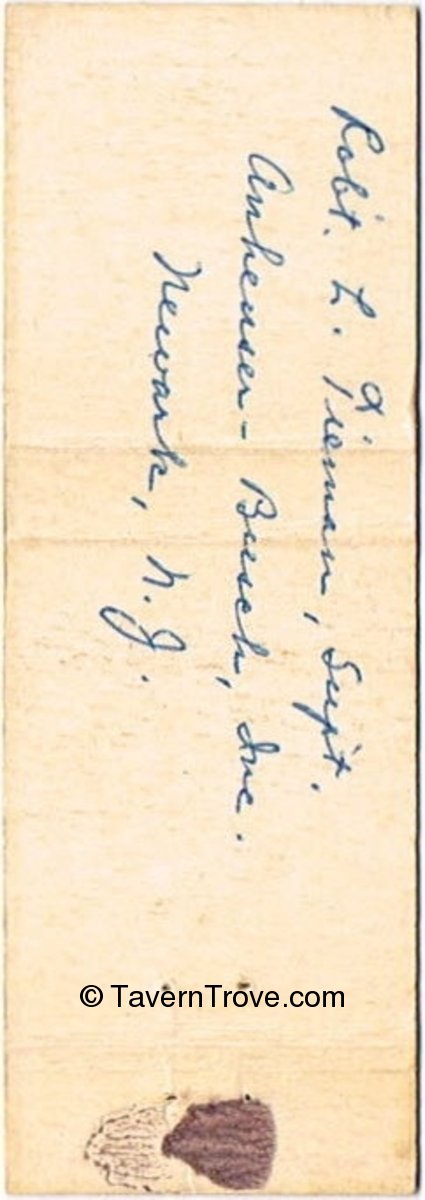 Robt. L. Tieman, Supt.
Anheuser-Busch, Inc.
Newark, N.J.
© TavernTrove.com